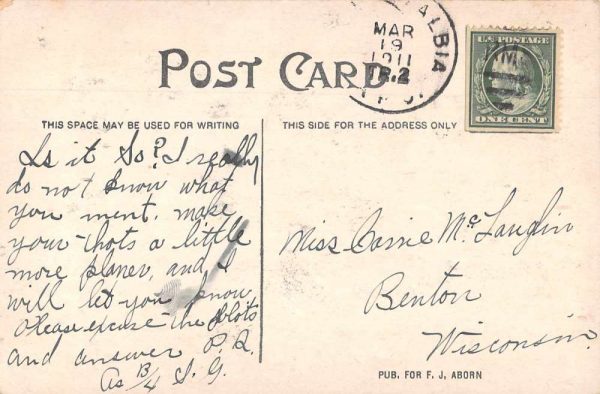 POST CARD
ALBIA
MAR
19
1911
TR. 2
U.S. POSTAGE
ONE CENT
THIS SPACE MAY BE USED FOR WRITING
THIS SIDE FOR THE ADDRESS ONLY
Is it So? I really
do not know what
you ment. make
your thots a little
more planer, and I
will let you know
Please excuse the blots
and answer P. Q.
As B/4 S. G.
Miss Carrie McLauglin
Benton
Wisconsin.
PUB. FOR F. J. ABORN